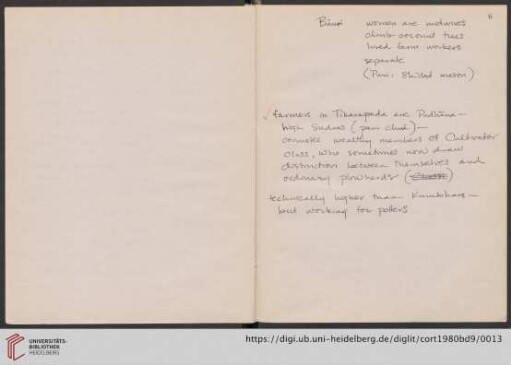 6
Bauri women are midwives
climb coconut trees
hired farm workers
separate
(Pani: Skilled mason)
farmers in Tikarapada are Pradhāna —
high Sudras (pani chud) —
onwates wealthy members of Cultivator
class, who sometimes now draw
distinction between themselves and
ordinary plowherds (
technically higher than Kumbhars —
but working for potters
UNIVERSITÄTS-
BIBLIOTHEK
HEIDELBERG
https://digi.ub.uni-heidelberg.de/diglit/cort1980bd9/0013